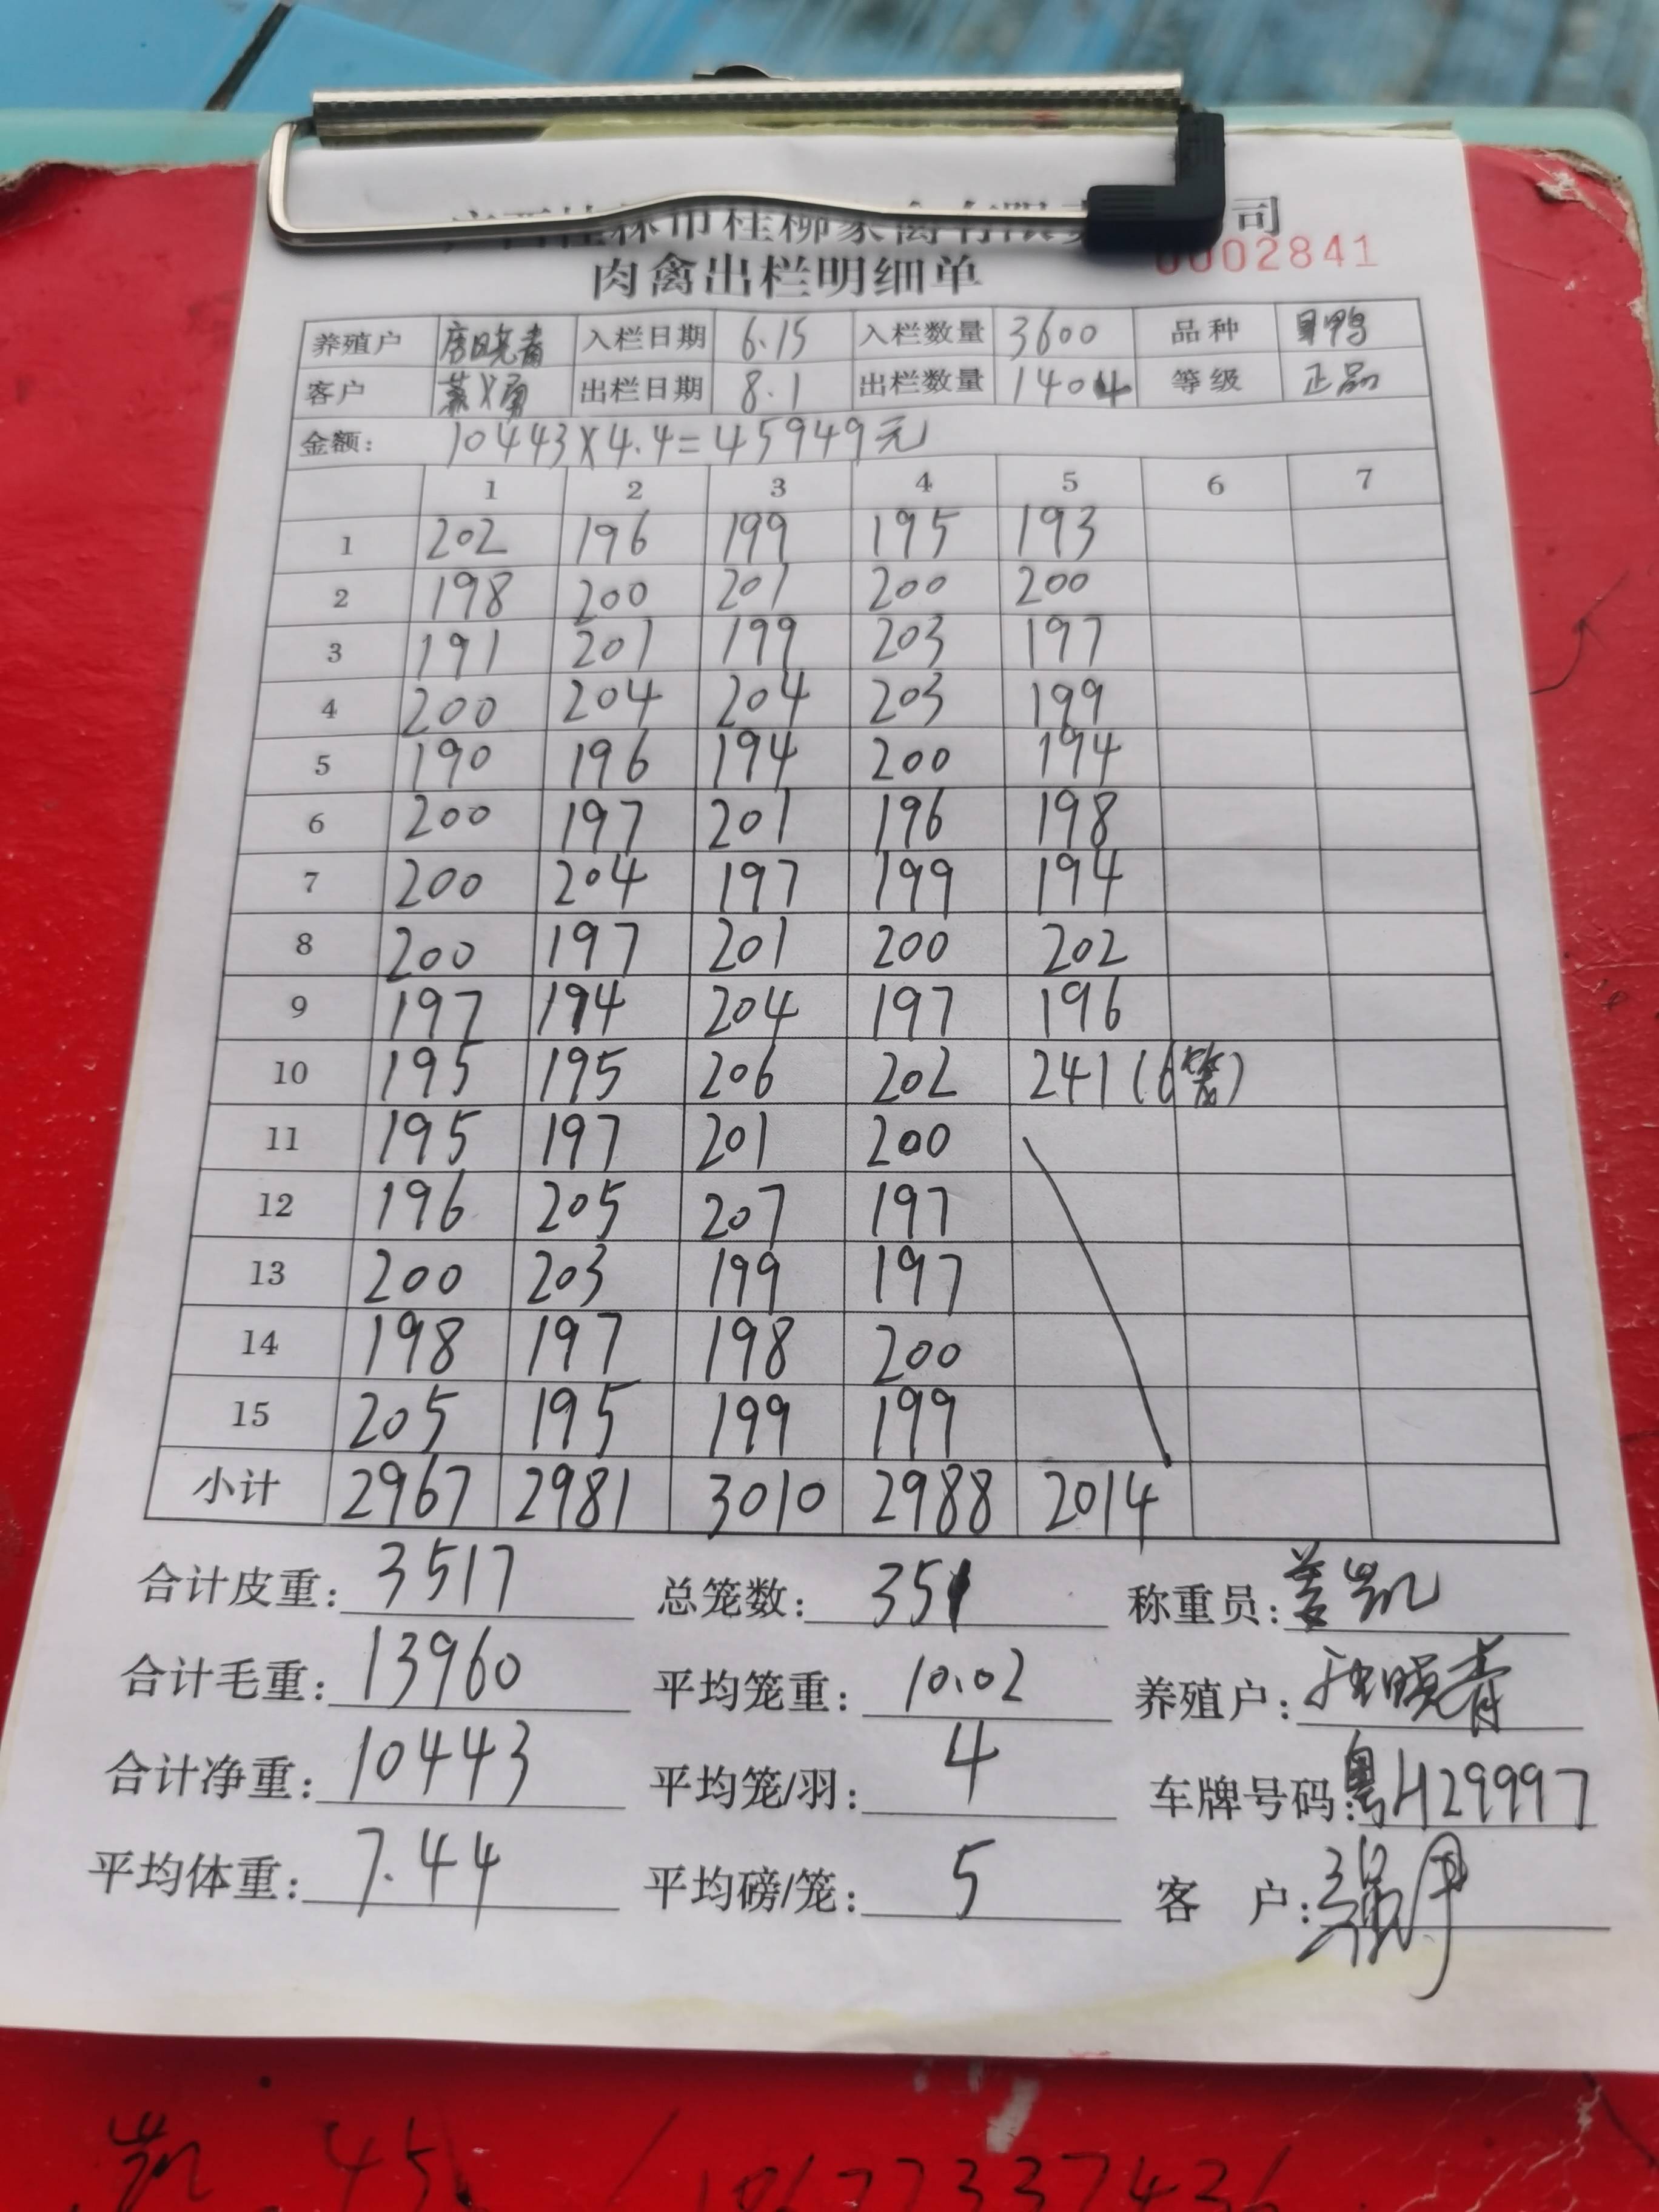 广西桂林市桂柳家禽有限责 司
0002841
肉禽出栏明细单
养殖户 唐晓青 入栏日期 6.15 入栏数量 3600 品种
客户 出栏日期 8.1 出栏数量 1404 等级 正品
金额: 10443×4.4=45949元
1 2 3 4 5 6 7
1 202 196 199 195 193
2 198 200 201 200 200
3 191 201 199 203 197
4 200 204 204 203 199
5 190 196 194 200 194
6 200 197 201 196 198
7 200 204 197 199 194
8 200 197 201 200 202
9 197 194 204 197 196
10 195 195 206 202 241(6笼)
11 195 197 201 200
12 196 205 207 197
13 200 203 199 197
14 198 197 198 200
15 205 195 199 199
小计 2967 2981 3010 2988 2014
合计皮重: 3517 总笼数: 351 称重员: 姜凯
合计毛重: 13960 平均笼重: 10.02 养殖户: 晓青
合计净重: 10443 平均笼/羽: 4 车牌号码: 粤H29997
平均体重: 7.44 平均磅/笼: 5 客 户:
凯 45